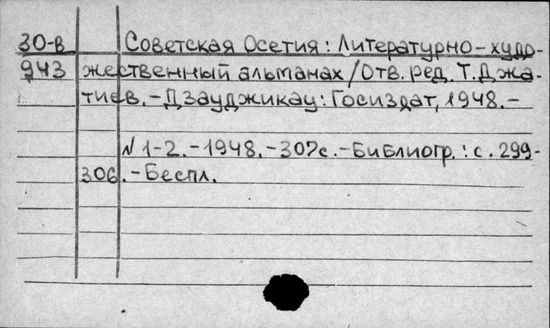 30-в Советская Осетия: Литературно-худо-
943 жественный альманах/Отв. ред. Т. Джа-
тиев.-Дзауджикау: Госиздат, 1948.-
N 1-2.-1948.-307с.-Библиогр.: с. 299-
306.-Беспл.